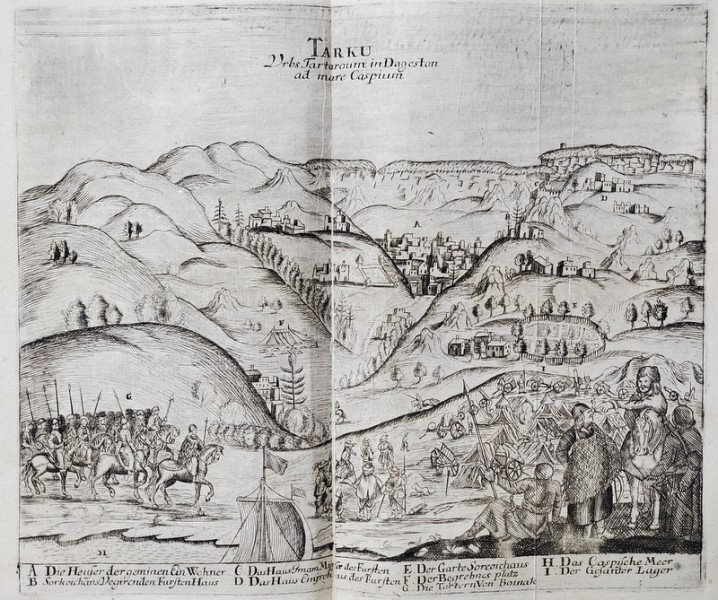 TARKU
Urbs Tartaroum in Dageston
ad mare Caspium
A
D
F
E
G
I
H
A Die Heuser der geminen Ein Wohner
B Sorkoichans Regirenden Fursten Haus
C Das Haus Imam
D Das Haus
des Fursten
des Fursten
E Der Garte Soreoichaus
F Der Begrebnus platz
G Die Tartern Von Boinak
H Das Caspische Meer
I Der Gesander Lager